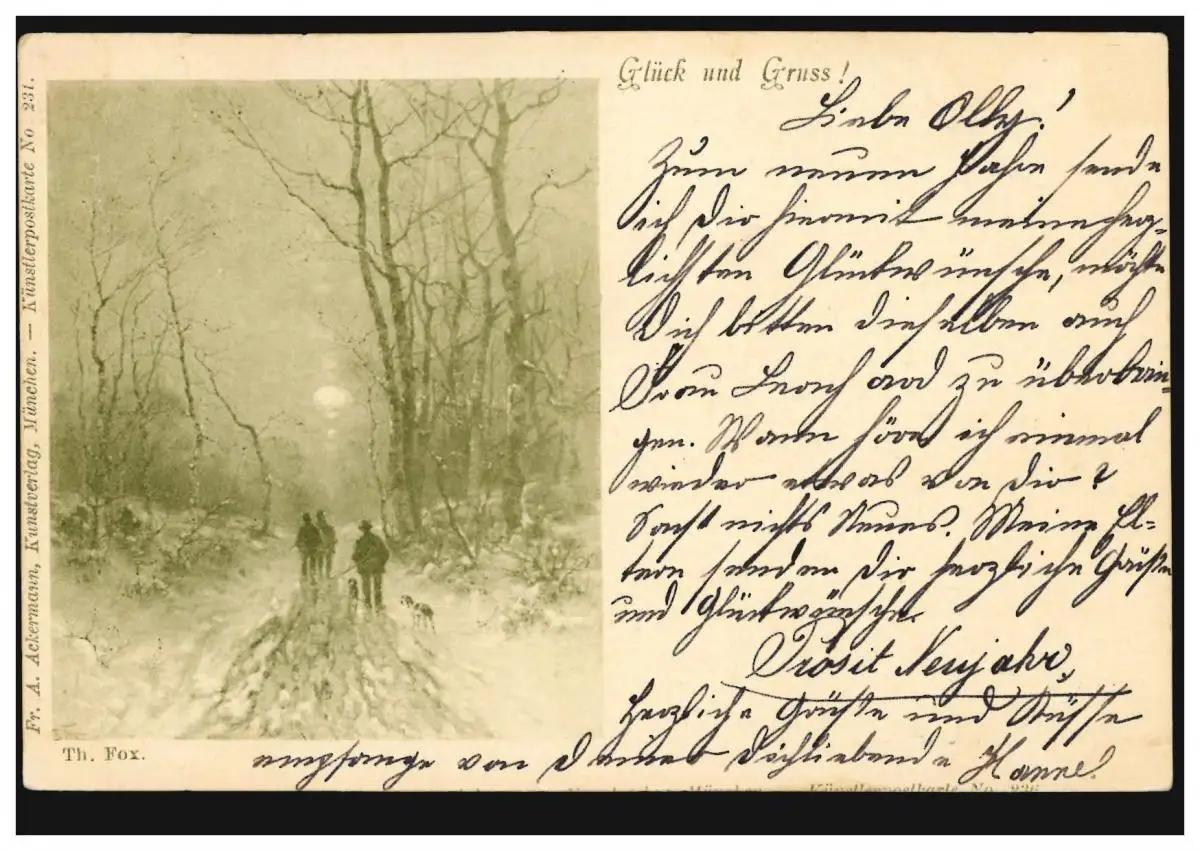 Fr. A. Ackermann, Kunstverlag, München. — Künstlerpostkarte No 231.
Glück und Gruss!
Liebe Olly!
Zum neuen Jahre sende
ich Dir hiermit meine herz-
lichsten Glückwünsche, möchte
Dich bitten dieselben auch
Frau zu überbrin-
gen. Wann höre ich einmal
wieder etwas von Dir?
Sonst nichts Neues. Meine El-
tern senden Dir herzliche Grüße
und Glückwünsche.
Prosit Neujahr,
Herzliche Grüße und Küsse
empfange von Deiner Dichliebende Hanne!
Th. Fox.
München. Künstlerpostkarte No. 236